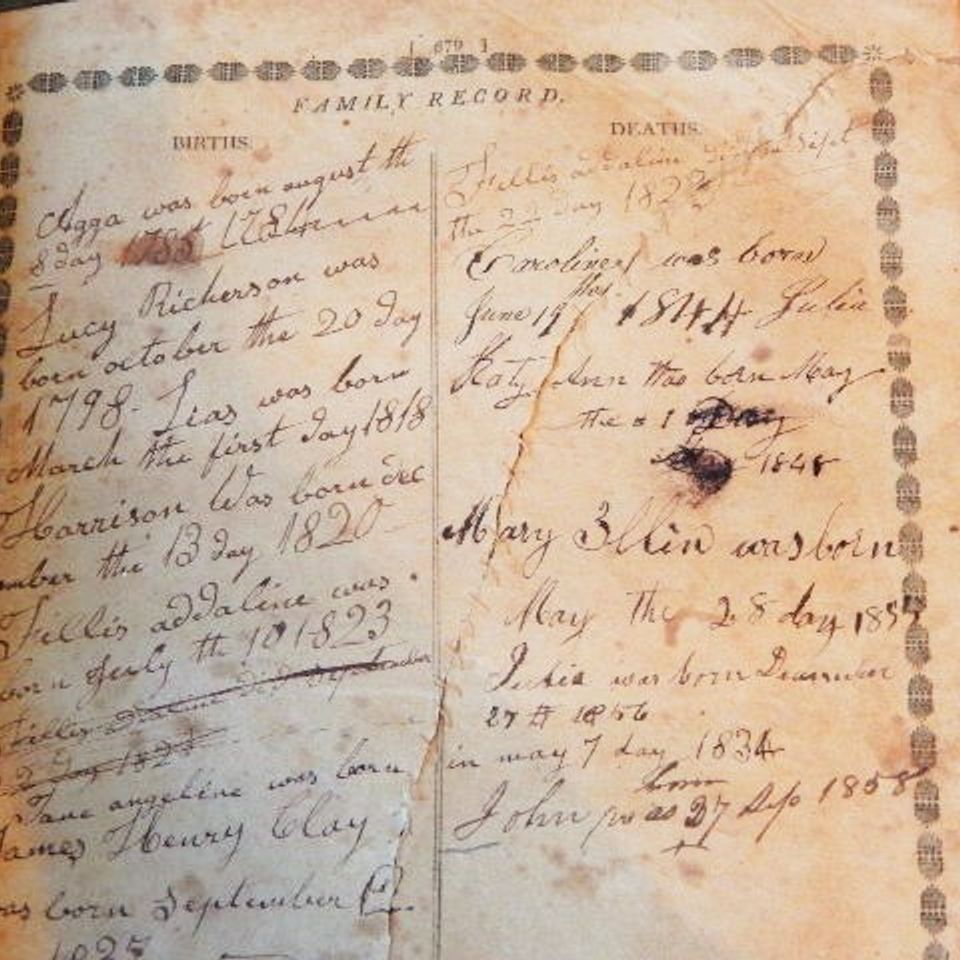 [ 679 ]
FAMILY RECORD.
BIRTHS.
Agga was born august th
8 day 1785 1784
Lucy Richerson was
born october the 20 day
1798. Lias was born
March the first day 1818
Harrison Was born dec
mber the 13 day 1820
Fillis addaline was
born July th 10 1823
Fillis
22 day 1823
Jane angeline was born
James Henry Clay
was born September
1825
DEATHS.
Fillis addaline Sept
the 22 day 1823
Caroline was born
June 19 1844 Julia
Katy Ann Was born May
the 1 Day
1848
Mary Ellin was born
May the 28 day 185
Julia was born December
27 1856
in may 7 day 1834
born
John was 27 Sep 1858